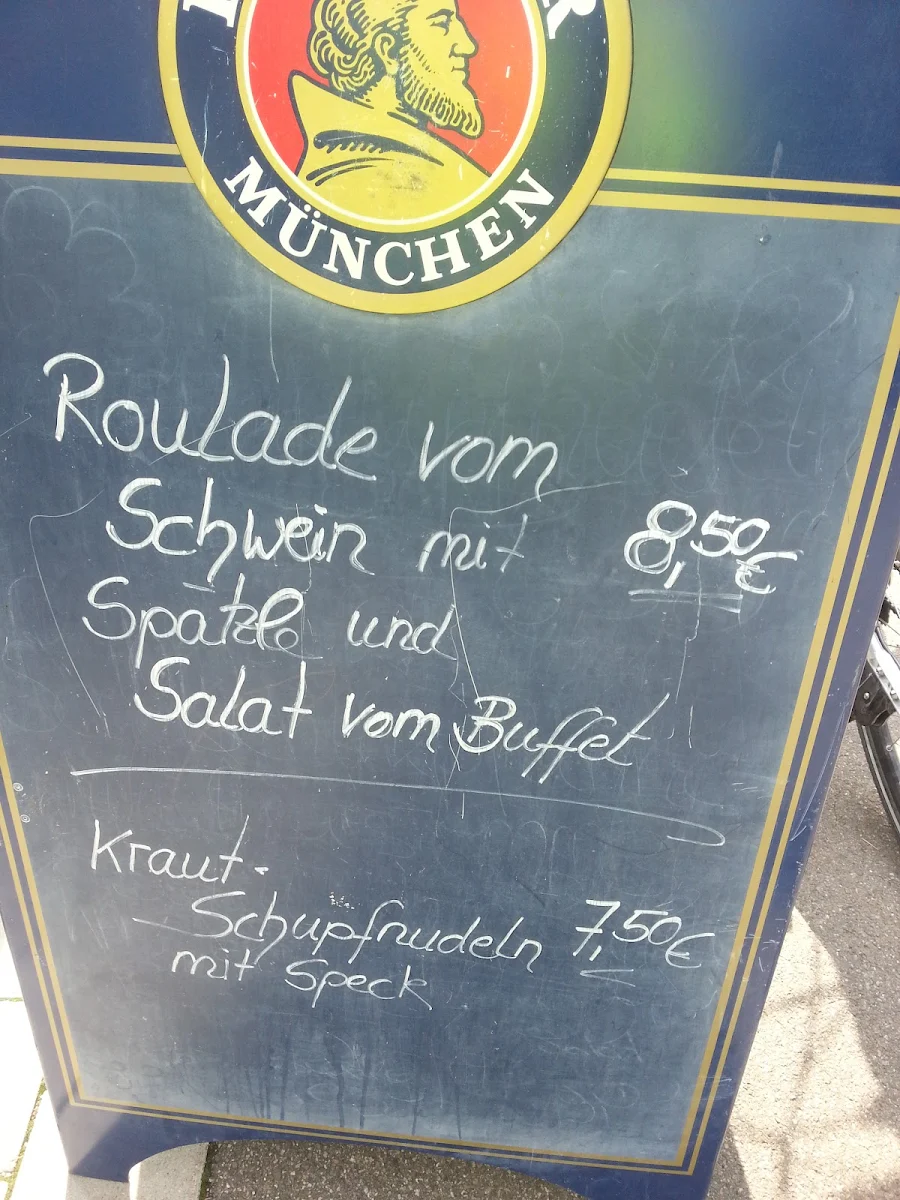 MÜNCHEN
Roulade vom
Schwein mit 8,50€
Spätzle und
Salat vom Buffet
Kraut-
Schupfnudeln 7,50€
mit Speck